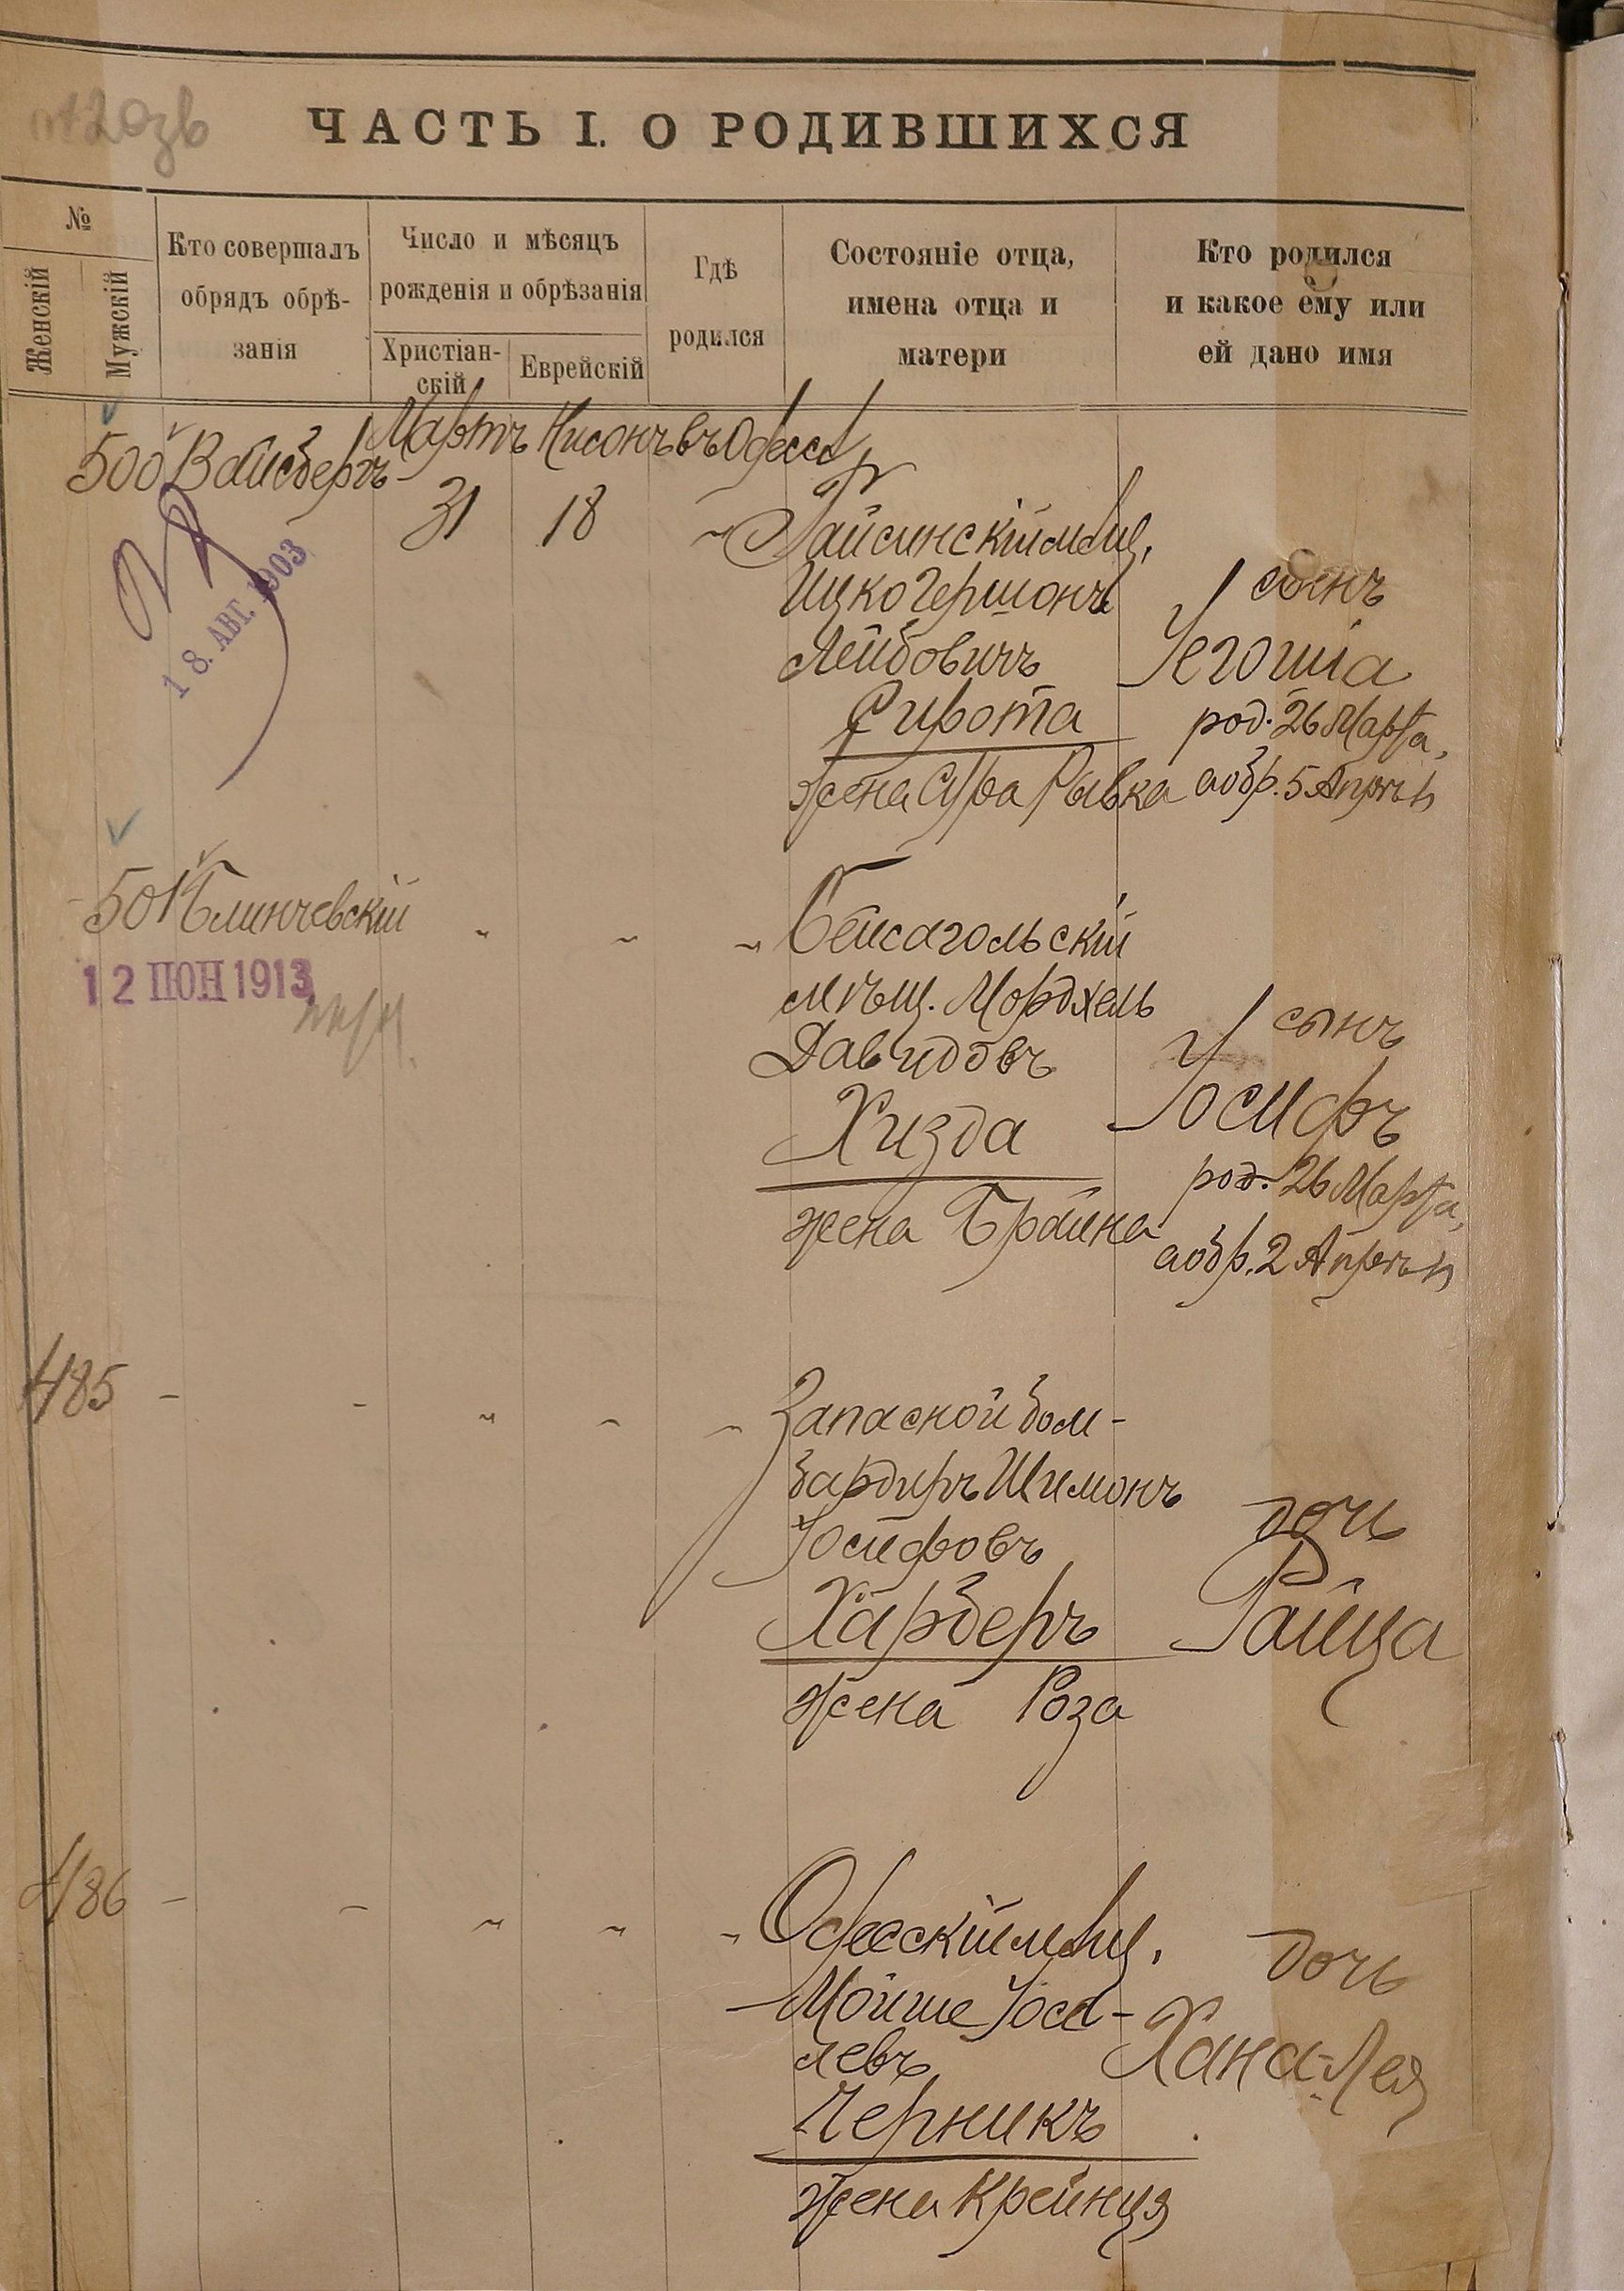 ЧАСТЬ I. О РОДИВШИХСЯ
№
Женскій
Мужскій
Кто совершалъ
обрядъ обрѣ-
занія
Число и мѣсяцъ
рожденія и обрѣзанія
Христіан-
скій
Еврейскій
Гдѣ
родился
Состояніе отца,
имена отца и
матери
Кто родился
и какое ему или
ей дано имя
500 Вайсбергъ
Мартъ Нисонъ въ Одессѣ
31 18 "
18. АВГ. 1903
Гайсинскій мѣщ.
Ицко Гершонъ
Лейбовичъ
Сирота
жена Сура Рывка
сынъ
Іегошіа
род. 26 Марта,
а обр. 5 Апрѣля
501 Блинчевскій " " "
12 ІЮН 1913
Бейсагольскій
мѣщ. Мордхель
Давидовъ
Хизда
жена Брайна
сынъ
Іосифъ
род. 26 Марта,
а обр. 2 Апрѣля
485 - - " " "
Запасной бом-
бардиръ Шимонъ
Іосифовъ
Харберъ
жена Роза
дочь
Раица
486 - - " " "
Одесскій мѣщ.
Мойше Іосе-
левъ
Черникъ
жена Крейнця
дочь
Хана-Лея